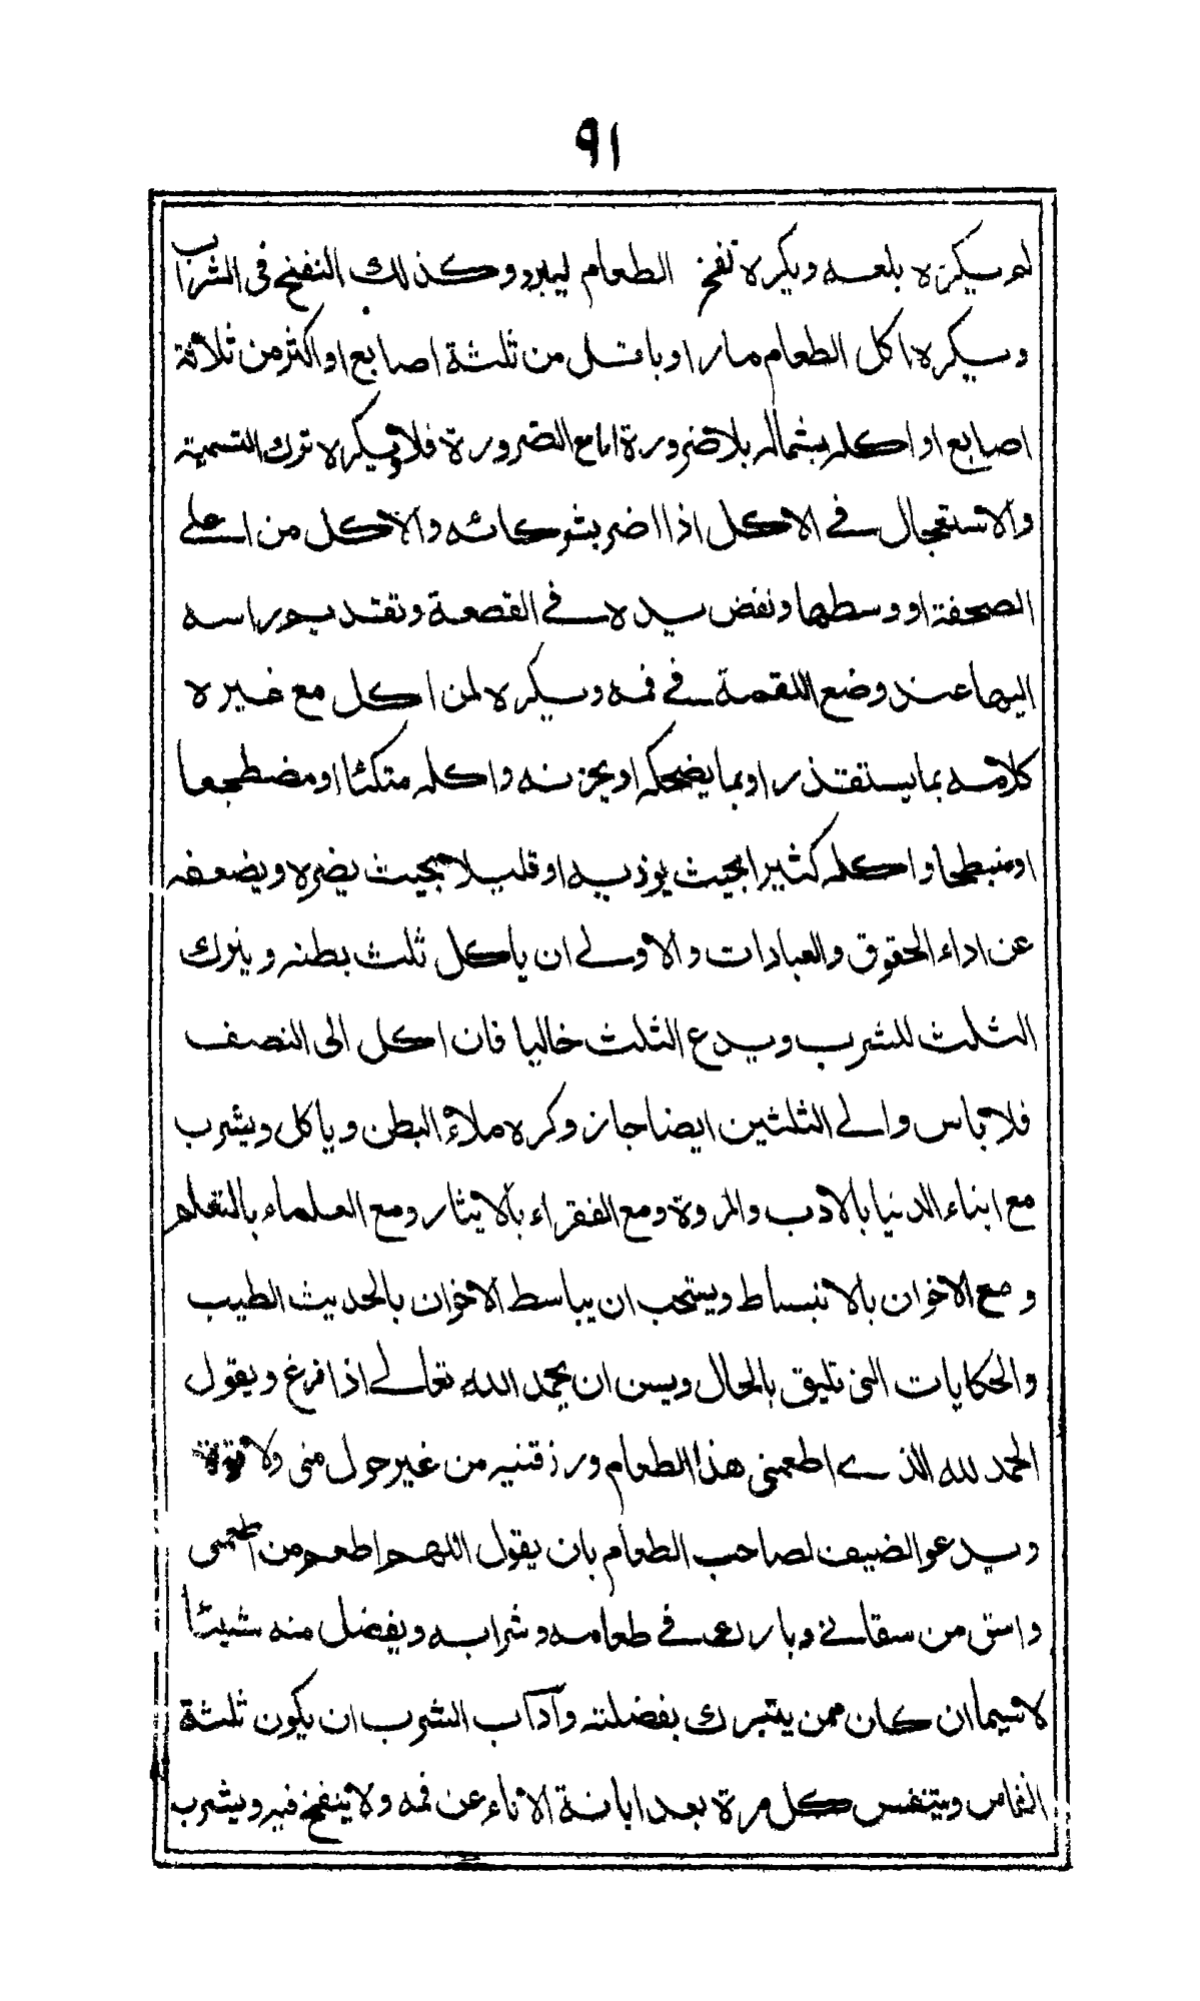 ٩١
لم يكره بلعه ويكره نفخ الطعام ليبرد وكذلك النفخ في الشراب
ويكره اكل الطعام حارا وباقل من ثلثة اصابع او اكثر من ثلاثة
اصابع او اكله بشماله بلا ضرورة اما مع الضرورة فلا ويكره ترك التسمية
والاستعجال في الاكل اذا اضر بشركائه والاكل من اعلى
الصحفة او وسطها ونفض يده في القصعة وتقديم راسه
اليها عند وضع اللقمة في فمه ويكره لمن اكل مع غيره
كلامه بما يستقذر او بما يضحكه او يحزنه واكله متكئا او مضطجعا
او منبطحا واكله كثيرا بحيث يوذيه او قليلا بحيث يضره ويضعفه
عن اداء الحقوق والعبادات والاولى ان ياكل ثلث بطنه ويترك
الثلث للشرب ويدع الثلث خاليا فان اكل الى النصف
فلا باس والى الثلثين ايضا جاز وكره ملاء البطن وياكل ويشرب
مع ابناء الدنيا بالادب والمروة ومع الفقراء بالايثار ومع العلماء بالتعلم
ومع الاخوان بالانبساط ويستحب ان يباسط الاخوان بالحديث الطيب
والحكايات التي تليق بالحال ويسن ان يحمد الله تعالى اذا فرغ ويقول
الحمد لله الذي اطعمني هذا الطعام ورزقنيه من غير حول مني ولا قوة
ويدعو الضيف لصاحب الطعام بان يقول اللهم اطعم من اطعمني
واسق من سقاني وبارك في طعامه وشرابه ويفضل منه شيئا
لا سيما ان كان ممن يتبرك بفضلته وآداب الشرب ان يكون ثلثة
انفاس ويتنفس كل مرة بعد ابانة الاناء عن فمه ولا ينفخ فيه ويشرب